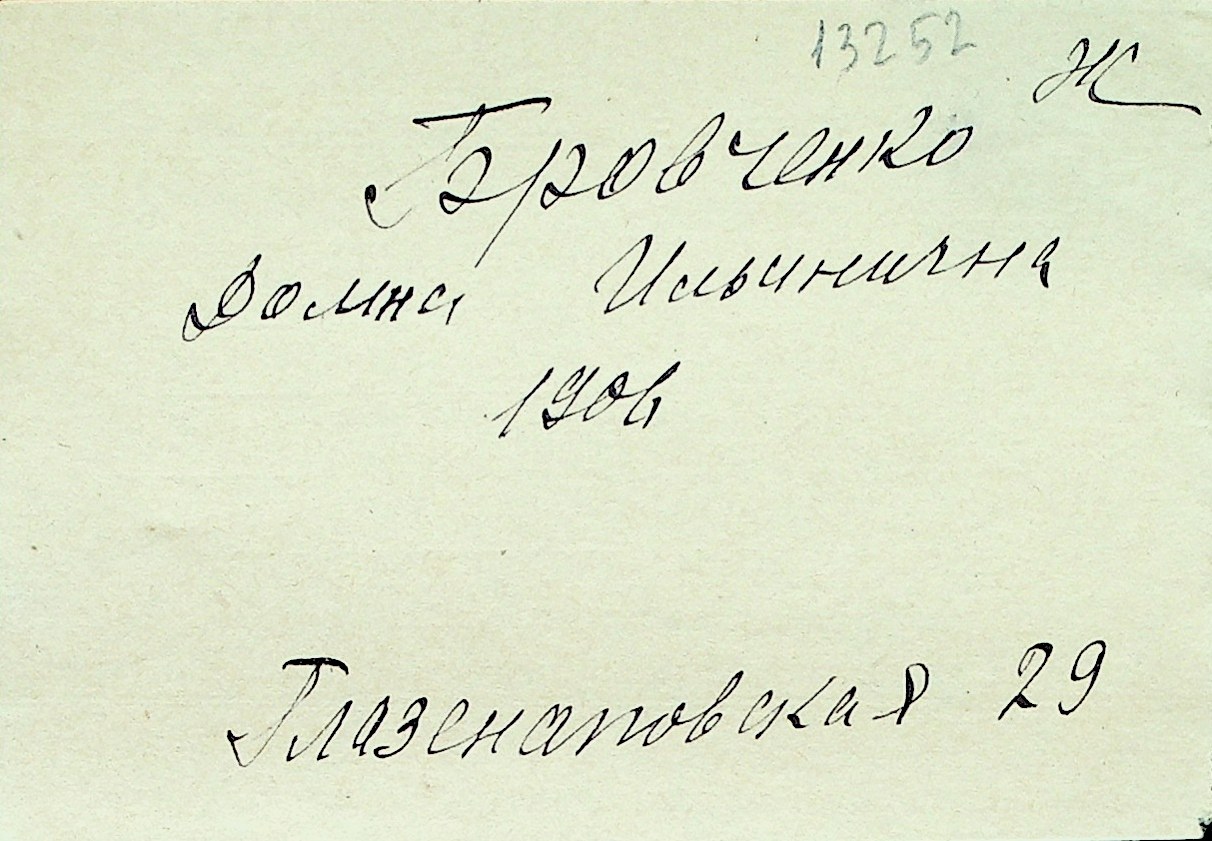 13252
Ж
Бровченко
Домна Ильинична
1906
Глазенаповская 29